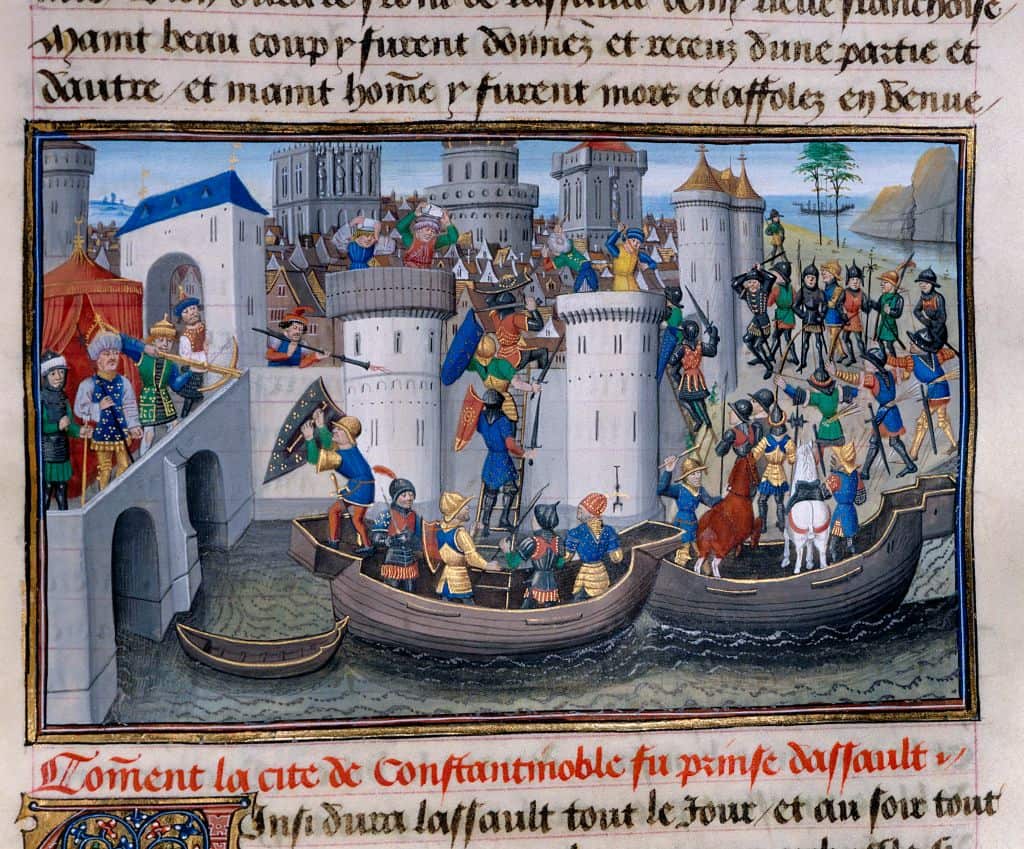 Maint beau coup y furent donnez et receuz dune partie et
dautre / et maint hom̄e y furent mors et affolez en venue /
Com̄ent la cite de Constantinoble fu prinse dassault
Insi dura lassault tout le Jour / et au soir tout